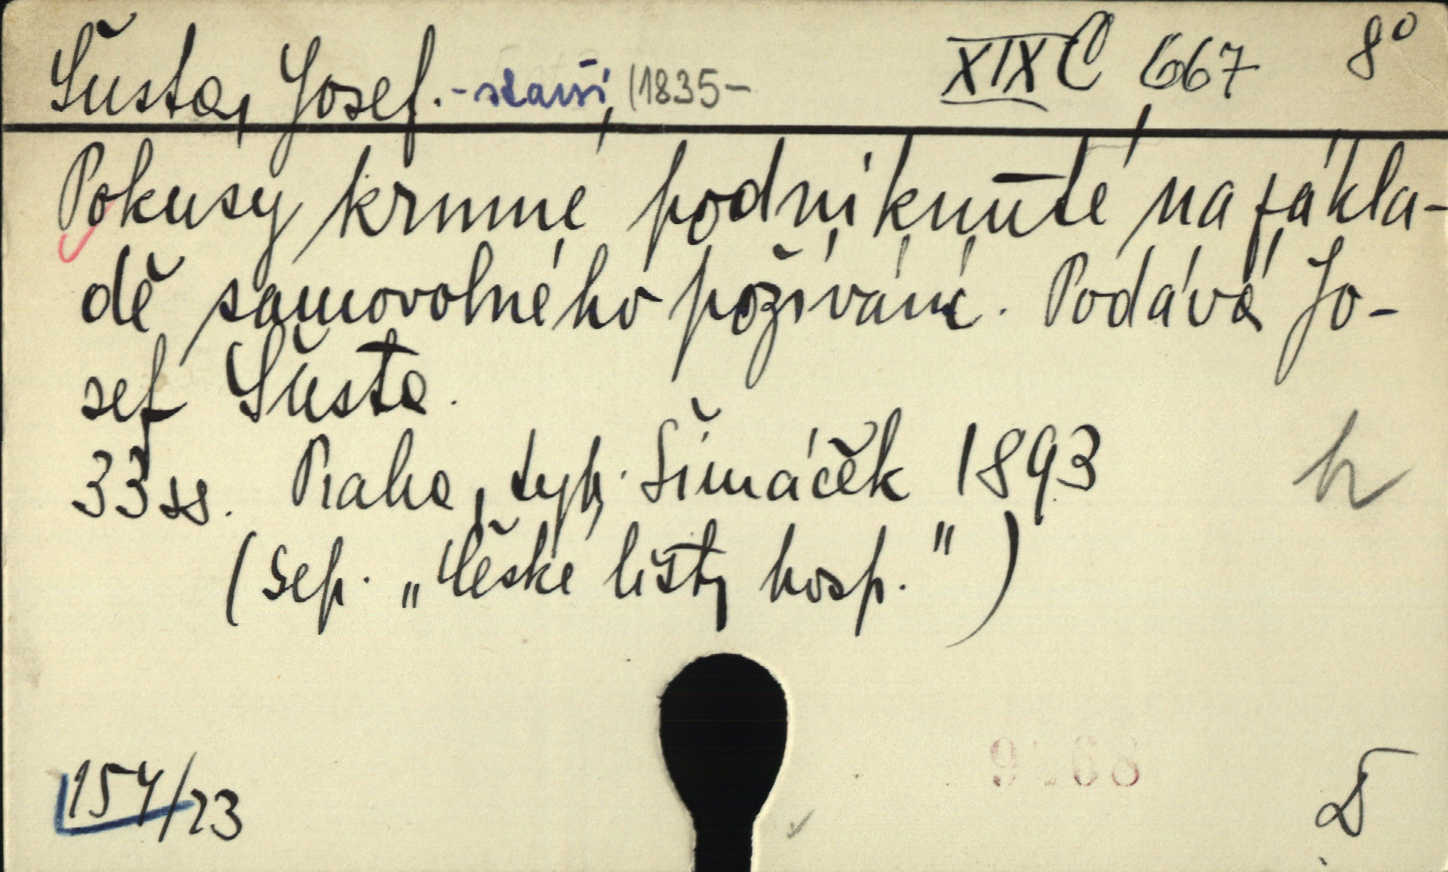 Šusta, Josef. - starší, (1835- XIX C 667 8°
Pokusy krmné podniknuté na zákla-
dě samovolného požívání. Podává Jo-
sef Šusta.
33 ss. Praha, typ. Šimáček 1893
h
(Sep. „České listy hosp.")
154/23